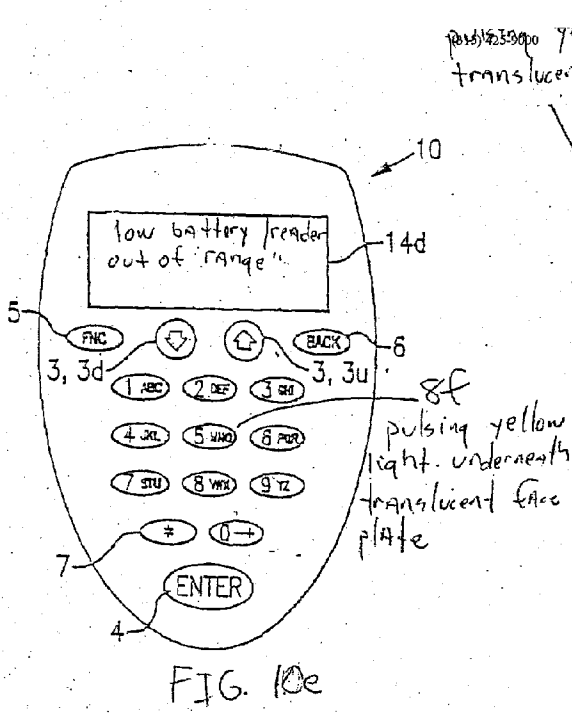 translucen
10
low battery / reader
out of range"
14d
5
FNC
BACK
6
3, 3d
3, 3u
1 ABC
2 DEF
3 GHI
8f
4 JKL
5 MNO
6 PQR
pulsing yellow
light underneath
translucent face
plate
7 STU
8 VWX
9 YZ
*
0
7
ENTER
4
FIG. 10e